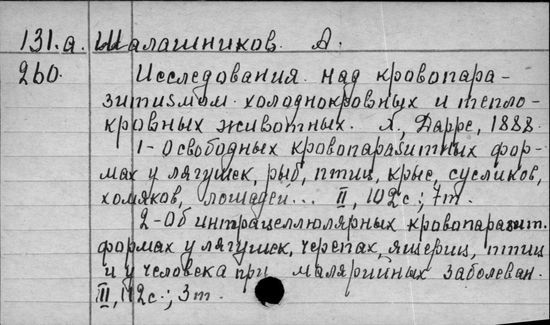 131.а. Шалашников. А.
260. Исследования над кровопара-
зитизмом холоднокровных и тепло-
кровных животных. Х., Дарре, 1888.
1- О свободных кровопаразитных фор-
мах у лягушек, рыб, птиц, крыс, сусликов,
хомяков, лошадей... II, 102с.; 7т.
2- Об интрацеллюлярных кровопаразит.
формах у лягушек, черепах, ящериц, птиц
и у человека при малярийных заболеван.
III, 112с.; 3т.